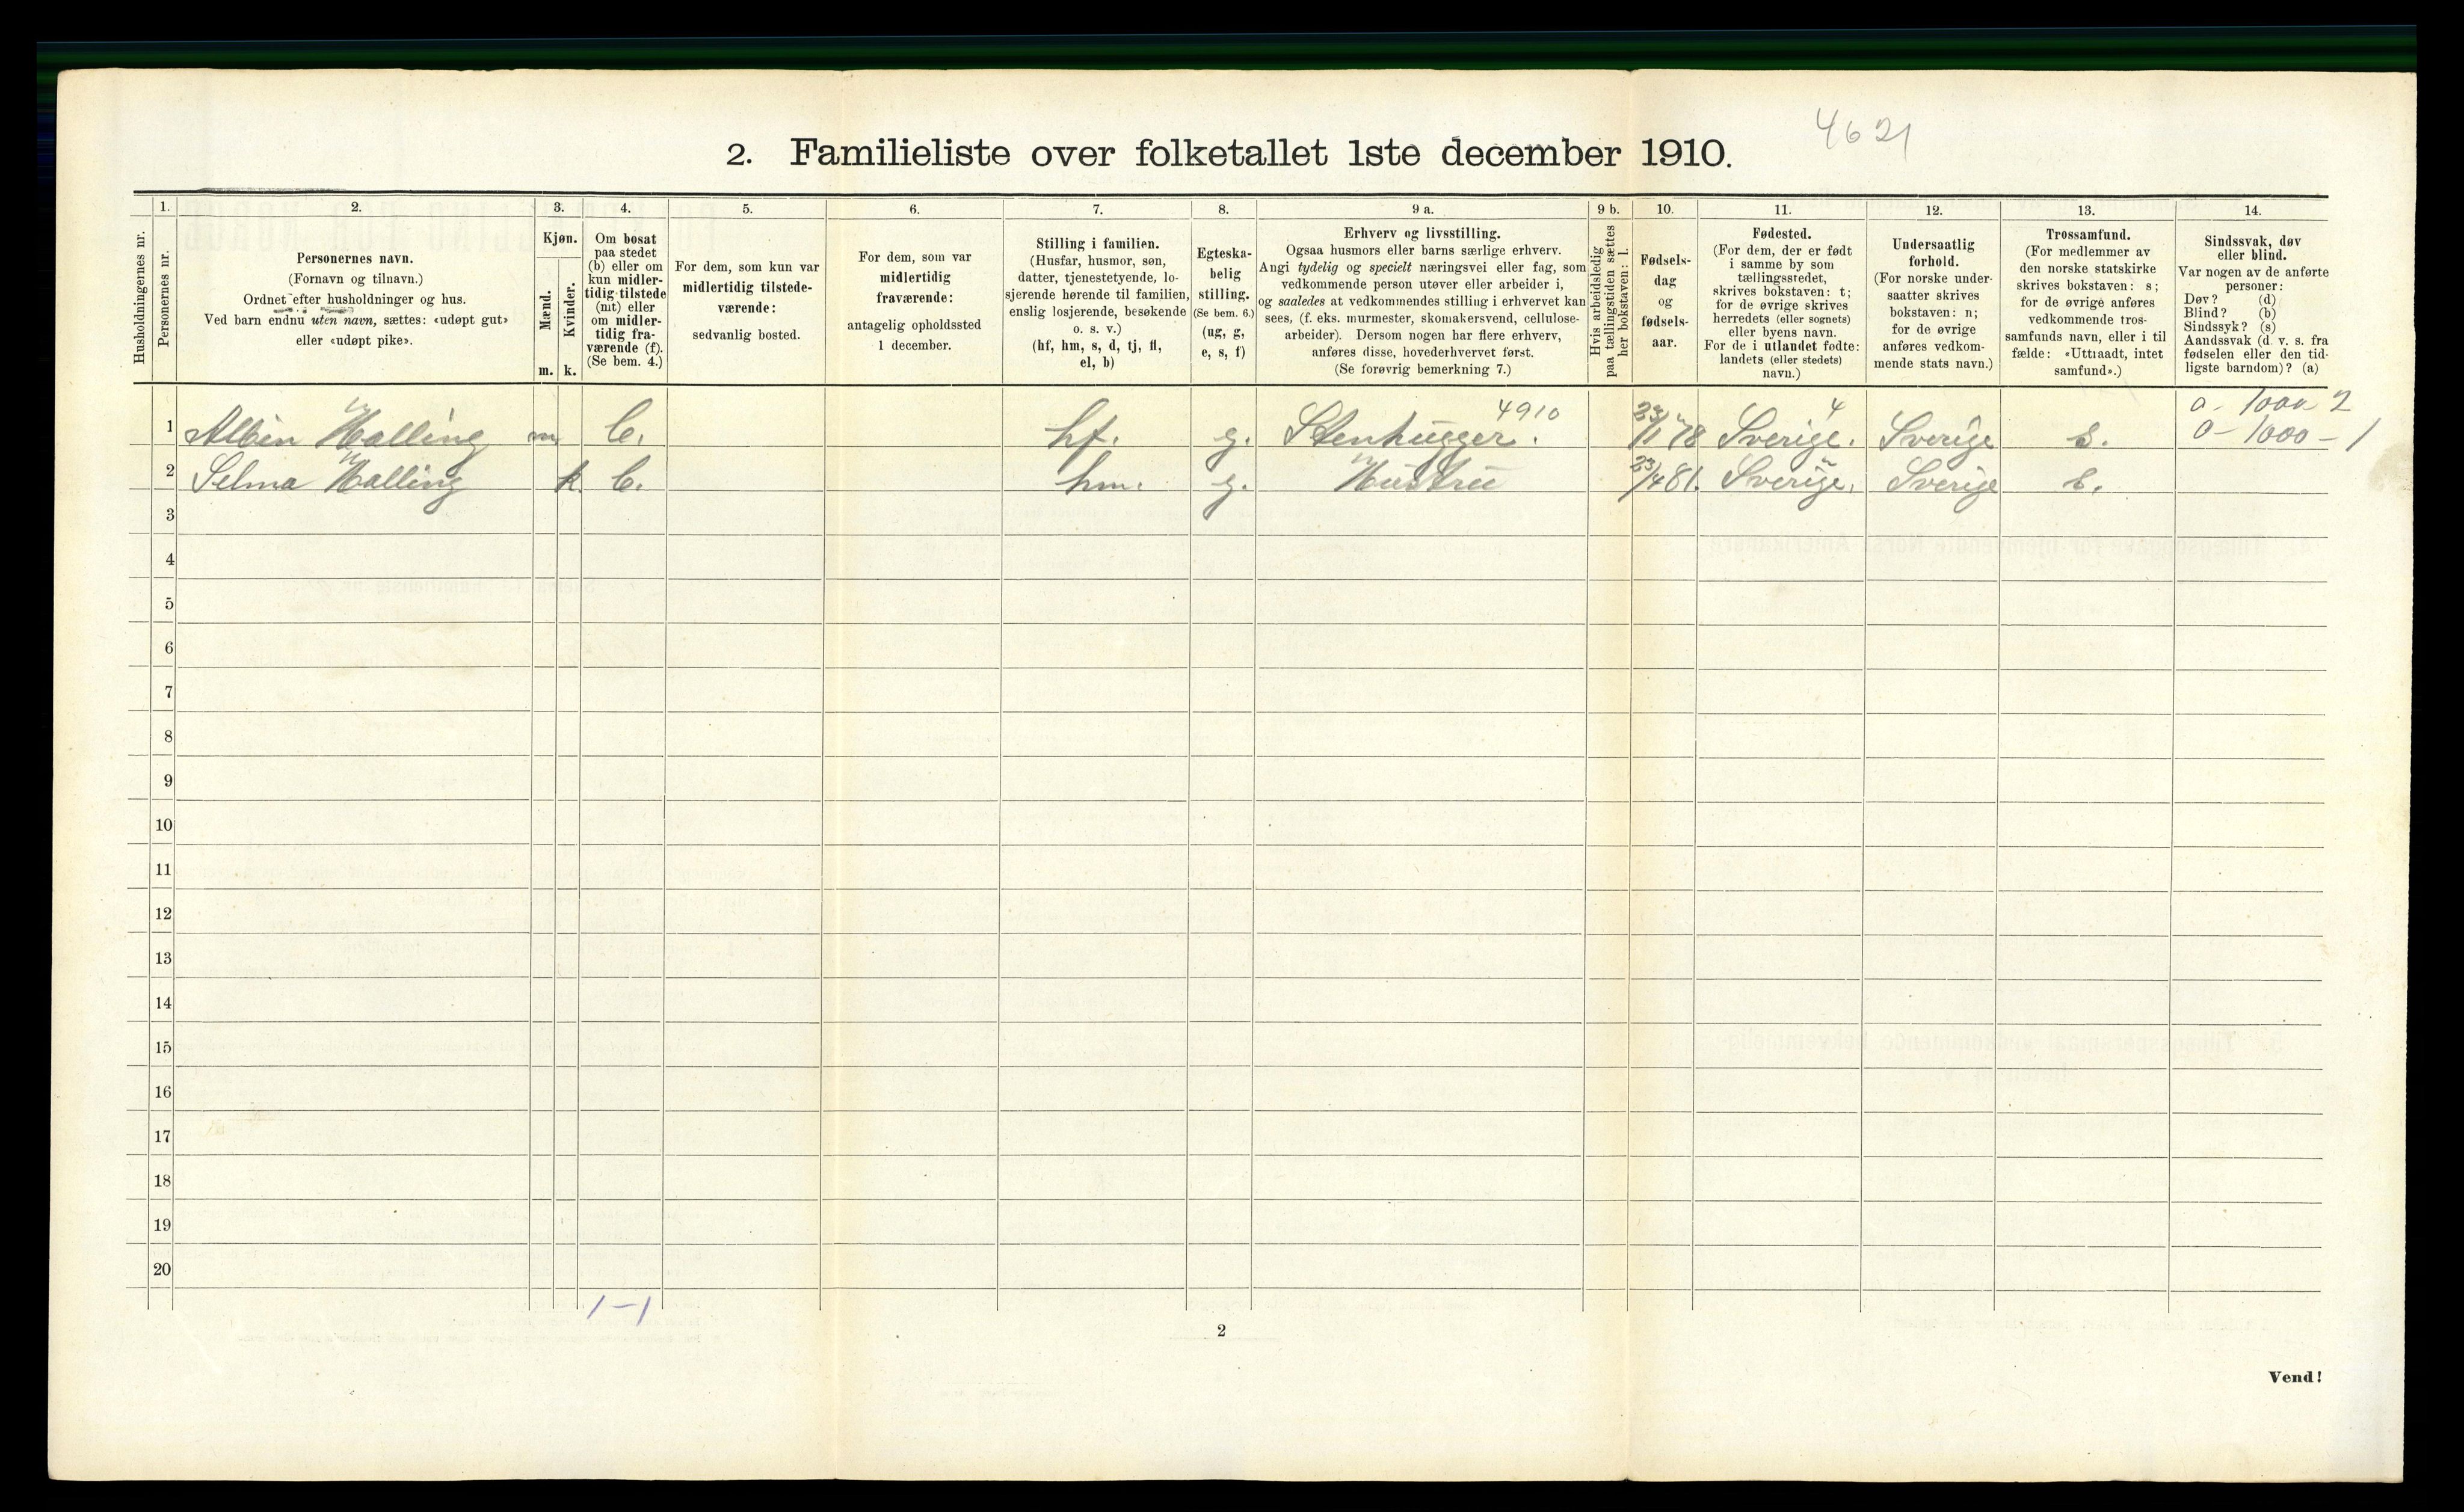 4621
2. Familieliste over folketallet 1ste december 1910.
1. 2. 3. 4. 5. 6. 7. 8. 9 a. 9 b. 10. 11. 12. 13. 14.
Husholdningernes nr.
Personernes nr.
Personernes navn.
(Fornavn og tilnavn.)
Ordnet efter husholdninger og hus.
Ved barn endnu uten navn, sættes: «udøpt gut»
eller «udøpt pike».
Kjøn.
Mænd.
Kvinder.
m. k.
Om bosat
paa stedet
(b) eller om
kun midler-
tidig tilstede
(mt) eller
om midler-
tidig fra-
værende (f).
(Se bem. 4.)
For dem, som kun var
midlertidig tilstede-
værende:
sedvanlig bosted.
For dem, som var
midlertidig
fraværende:
antagelig opholdssted
1 december.
Stilling i familien.
(Husfar, husmor, søn,
datter, tjenestetyende, lo-
sjerende hørende til familien,
enslig losjerende, besøkende
o. s. v.)
(hf, hm, s, d, tj, fl,
el, b)
Egteska-
belig
stilling.
(Se bem. 6.)
(ug, g,
e, s, f)
Erhverv og livsstilling.
Ogsaa husmors eller barns særlige erhverv.
Angi tydelig og specielt næringsvei eller fag, som
vedkommende person utøver eller arbeider i,
og saaledes at vedkommendes stilling i erhvervet kan
sees, (f. eks. murmester, skomakersvend, cellulose-
arbeider). Dersom nogen har flere erhverv,
anføres disse, hovederhvervet først.
(Se forøvrig bemerkning 7.)
Hvis arbeidsledig
paa tællingstiden sættes
her bokstaven: l.
Fødsels-
dag
og
fødsels-
aar.
Fødested.
(For dem, der er født
i samme by som
tællingsstedet,
skrives bokstaven: t;
for de øvrige skrives
herredets (eller sognets)
eller byens navn.
For de i utlandet fødte:
landets (eller stedets)
navn.)
Undersaatlig
forhold.
(For norske under-
saatter skrives
bokstaven: n;
for de øvrige
anføres vedkom-
mende stats navn.)
Trossamfund.
(For medlemmer av
den norske statskirke
skrives bokstaven: s;
for de øvrige anføres
vedkommende tros-
samfunds navn, eller i til
fælde: «Uttraadt, intet
samfund».)
Sindssvak, døv
eller blind.
Var nogen av de anførte
personer:
Døv? (d)
Blind? (b)
Sindssyk? (s)
Aandssvak (d. v. s. fra
fødselen eller den tid-
ligste barndom)? (a)
4910 4 0 - 1000 2
1 Albin Halling m b. hf. g. Stenhugger. 78 Sverige. Sverige s. 0 - 1000 - 1
2 Selma Halling k. b. hm. g. Hustru 23/4 81. Sverige. Sverige s.
3
4
5
6
7
8
9
10
11
12
13
14
15
16
17
18
19
20
1 - 1
2
Vend!